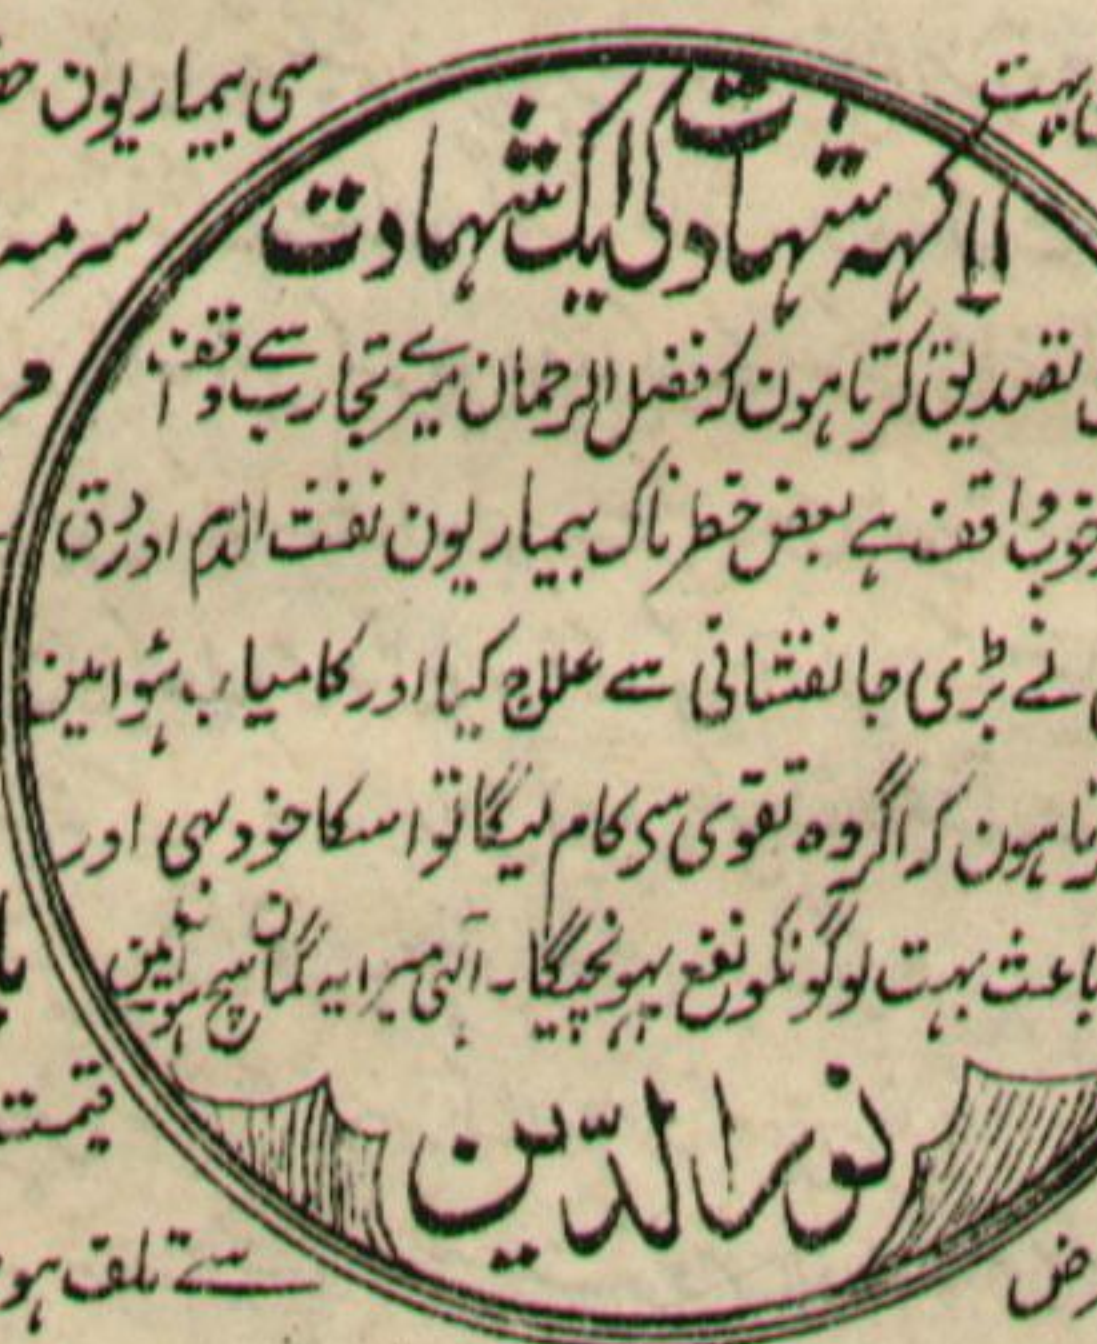 بہت
سی بیماریون
۱۱ کہہ شہادتوں کی ایک شہادت
سرمہ
تصدیق کرتا ہون کہ فضل الرحمان میرے تجارب سے واقف
خوب واقف ہے بعض خطرناک بیماریون نفث الدم اور دق
نے بڑی جانفشانی سے علاج کیا اور کامیاب ۂوا مین
ہون کہ اگر وہ تقوی سی کام لیگا تو اسکا خود بہی اور
باعث بہت لوگونکو نفع پہونچیگا۔ آلہی میرا یہ گمان سچ ہو آمین
نور الدّین
قیمت
سے تلف ہو